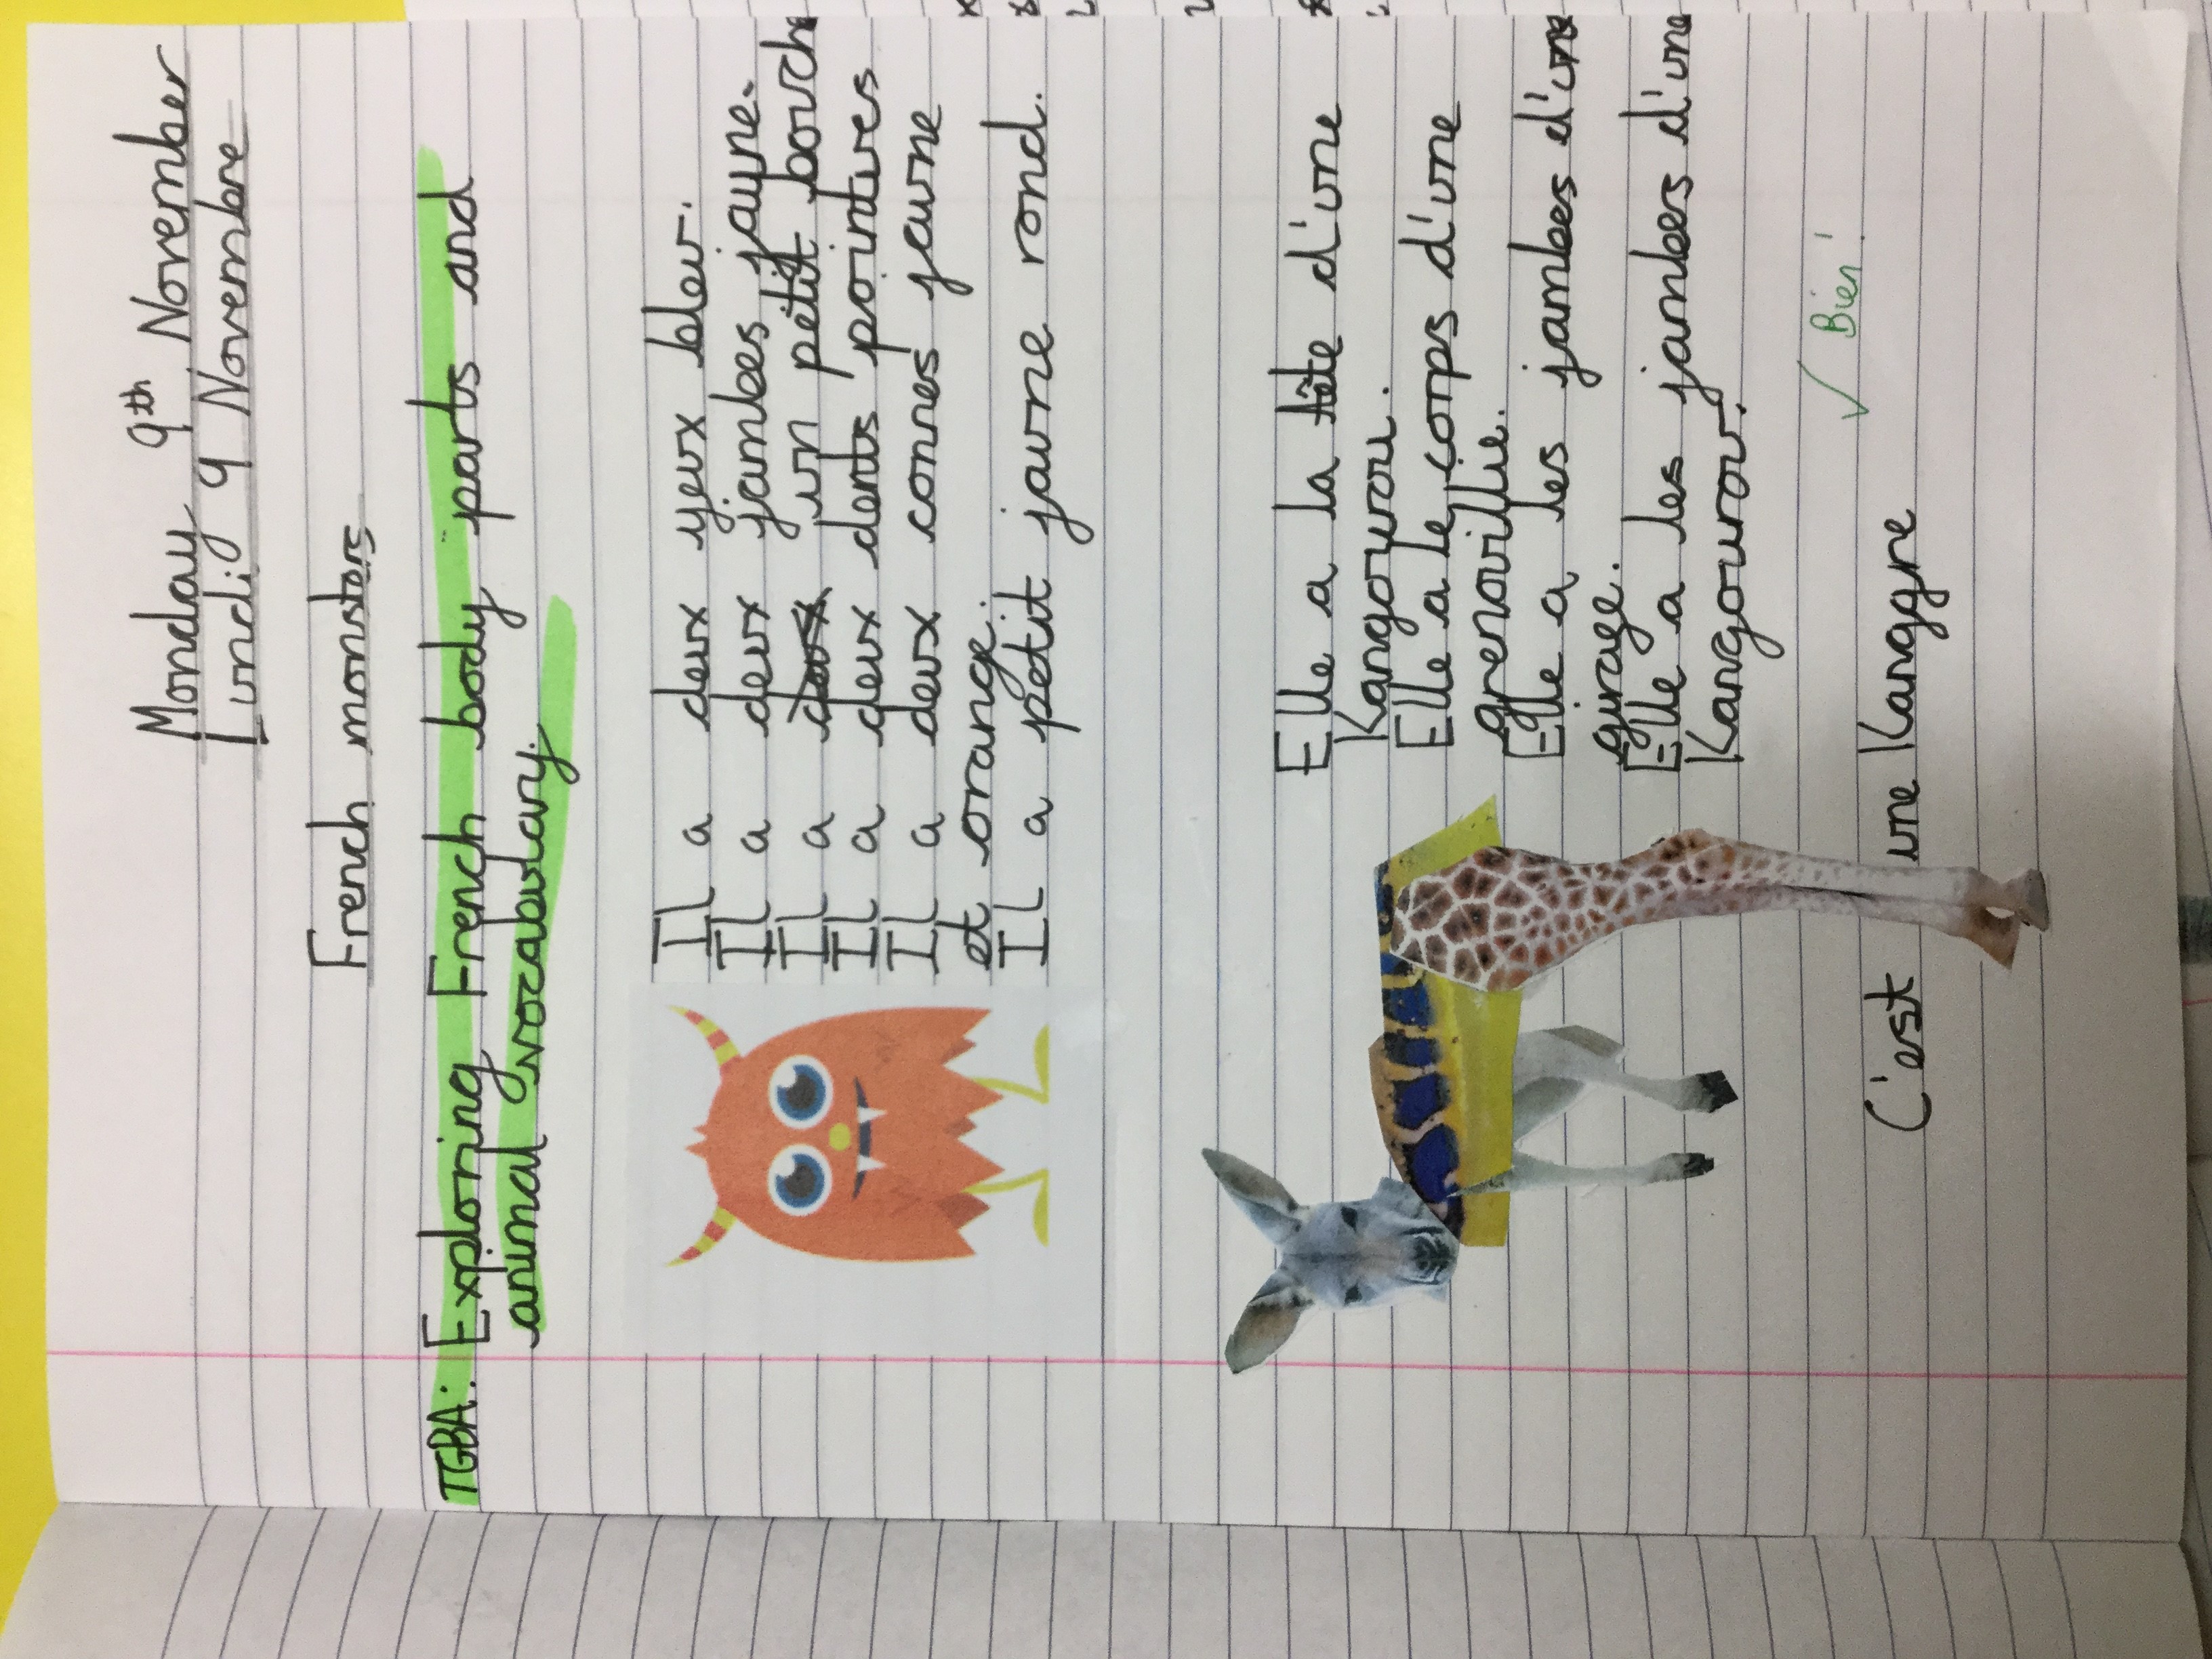 Monday 9th November
Lundi 9 Novembre
French monstors
TGBA: Exploring French body parts and
animal vocabulary.
IL a deux yeux bleu.
IL a deux jambes jayne.
IL a un petit bouch
IL a deux dents pointures
IL a deux cornes jaune
et orange.
IL a petit jaune rond.
Elle a la tête d'une
Kangourou.
Elle a le corps d'une
grenouillie.
Elle a les jambes d'une
girage.
Elle a les jambes d'une
Kangourou.
✓ Bien!
C'est une Kanggre